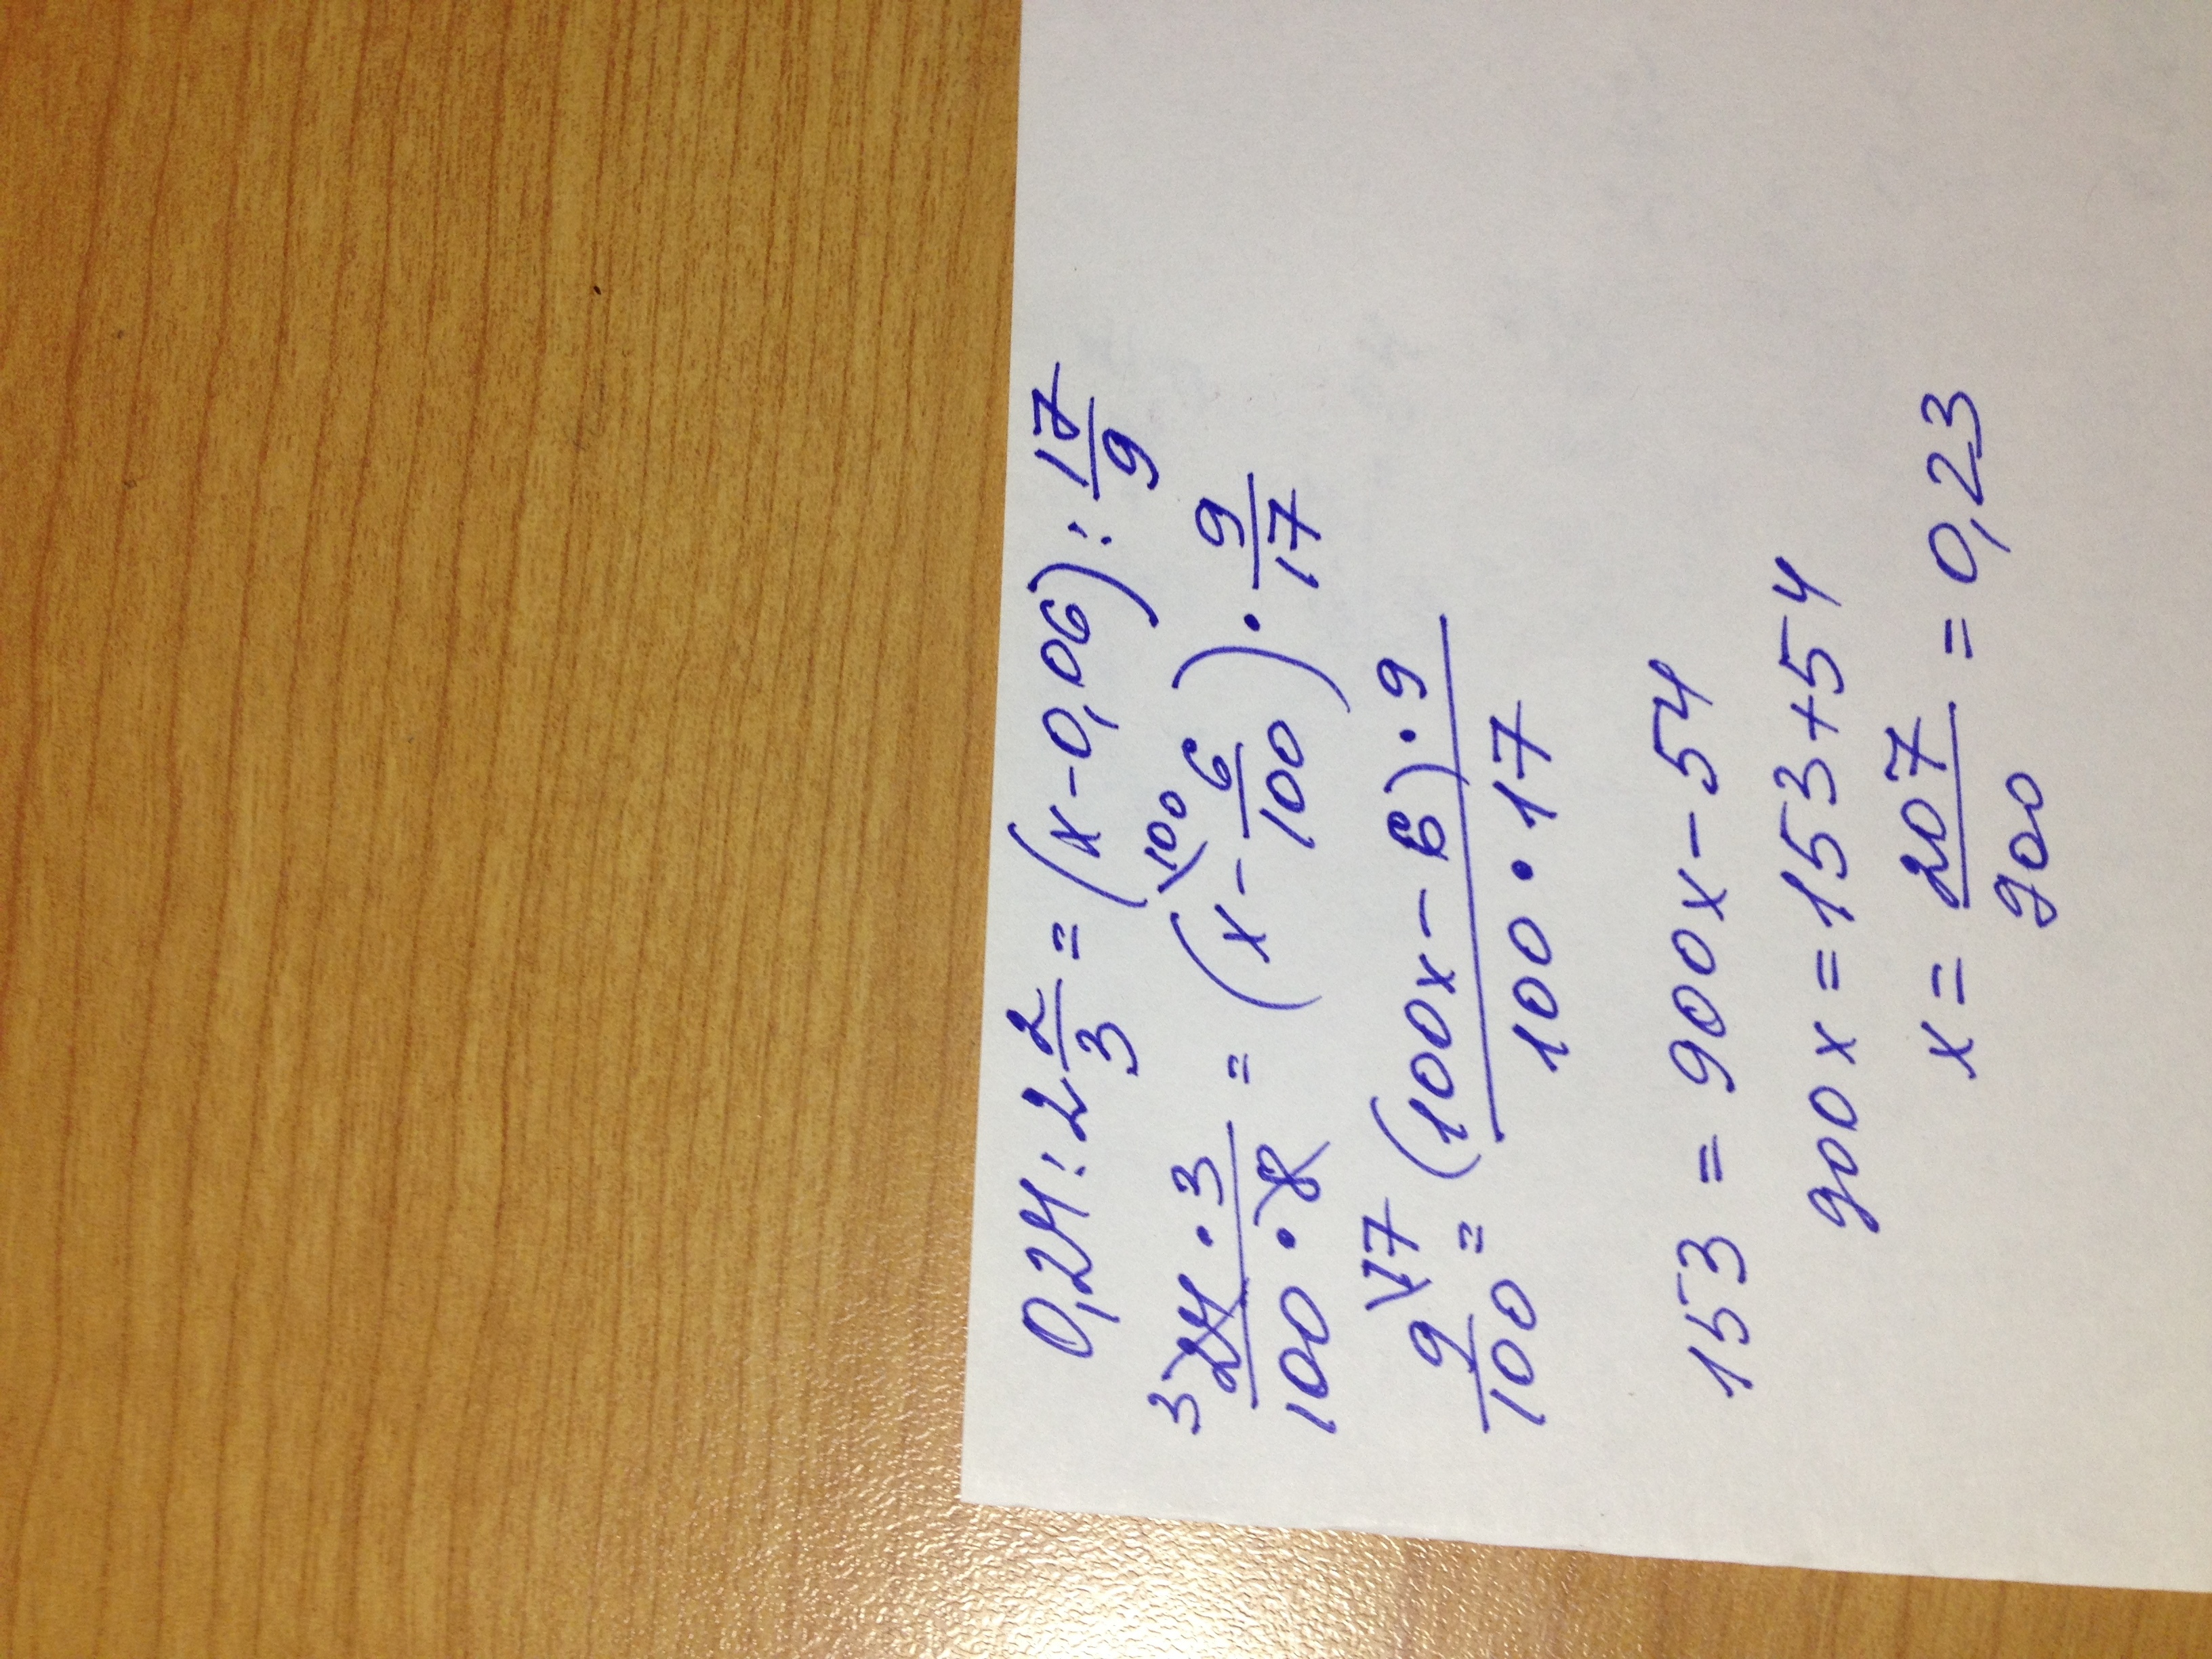 0,24 : 2 2/3 = (x - 0,06) : 17/9
³24 · 3 / 100 · 8 = (x\100 - 6/100) · 9/17
9/100 \17 = (100x - 6) · 9 / 100 · 17
153 = 900x - 54
900x = 153 + 54
x = 207/900 = 0,23